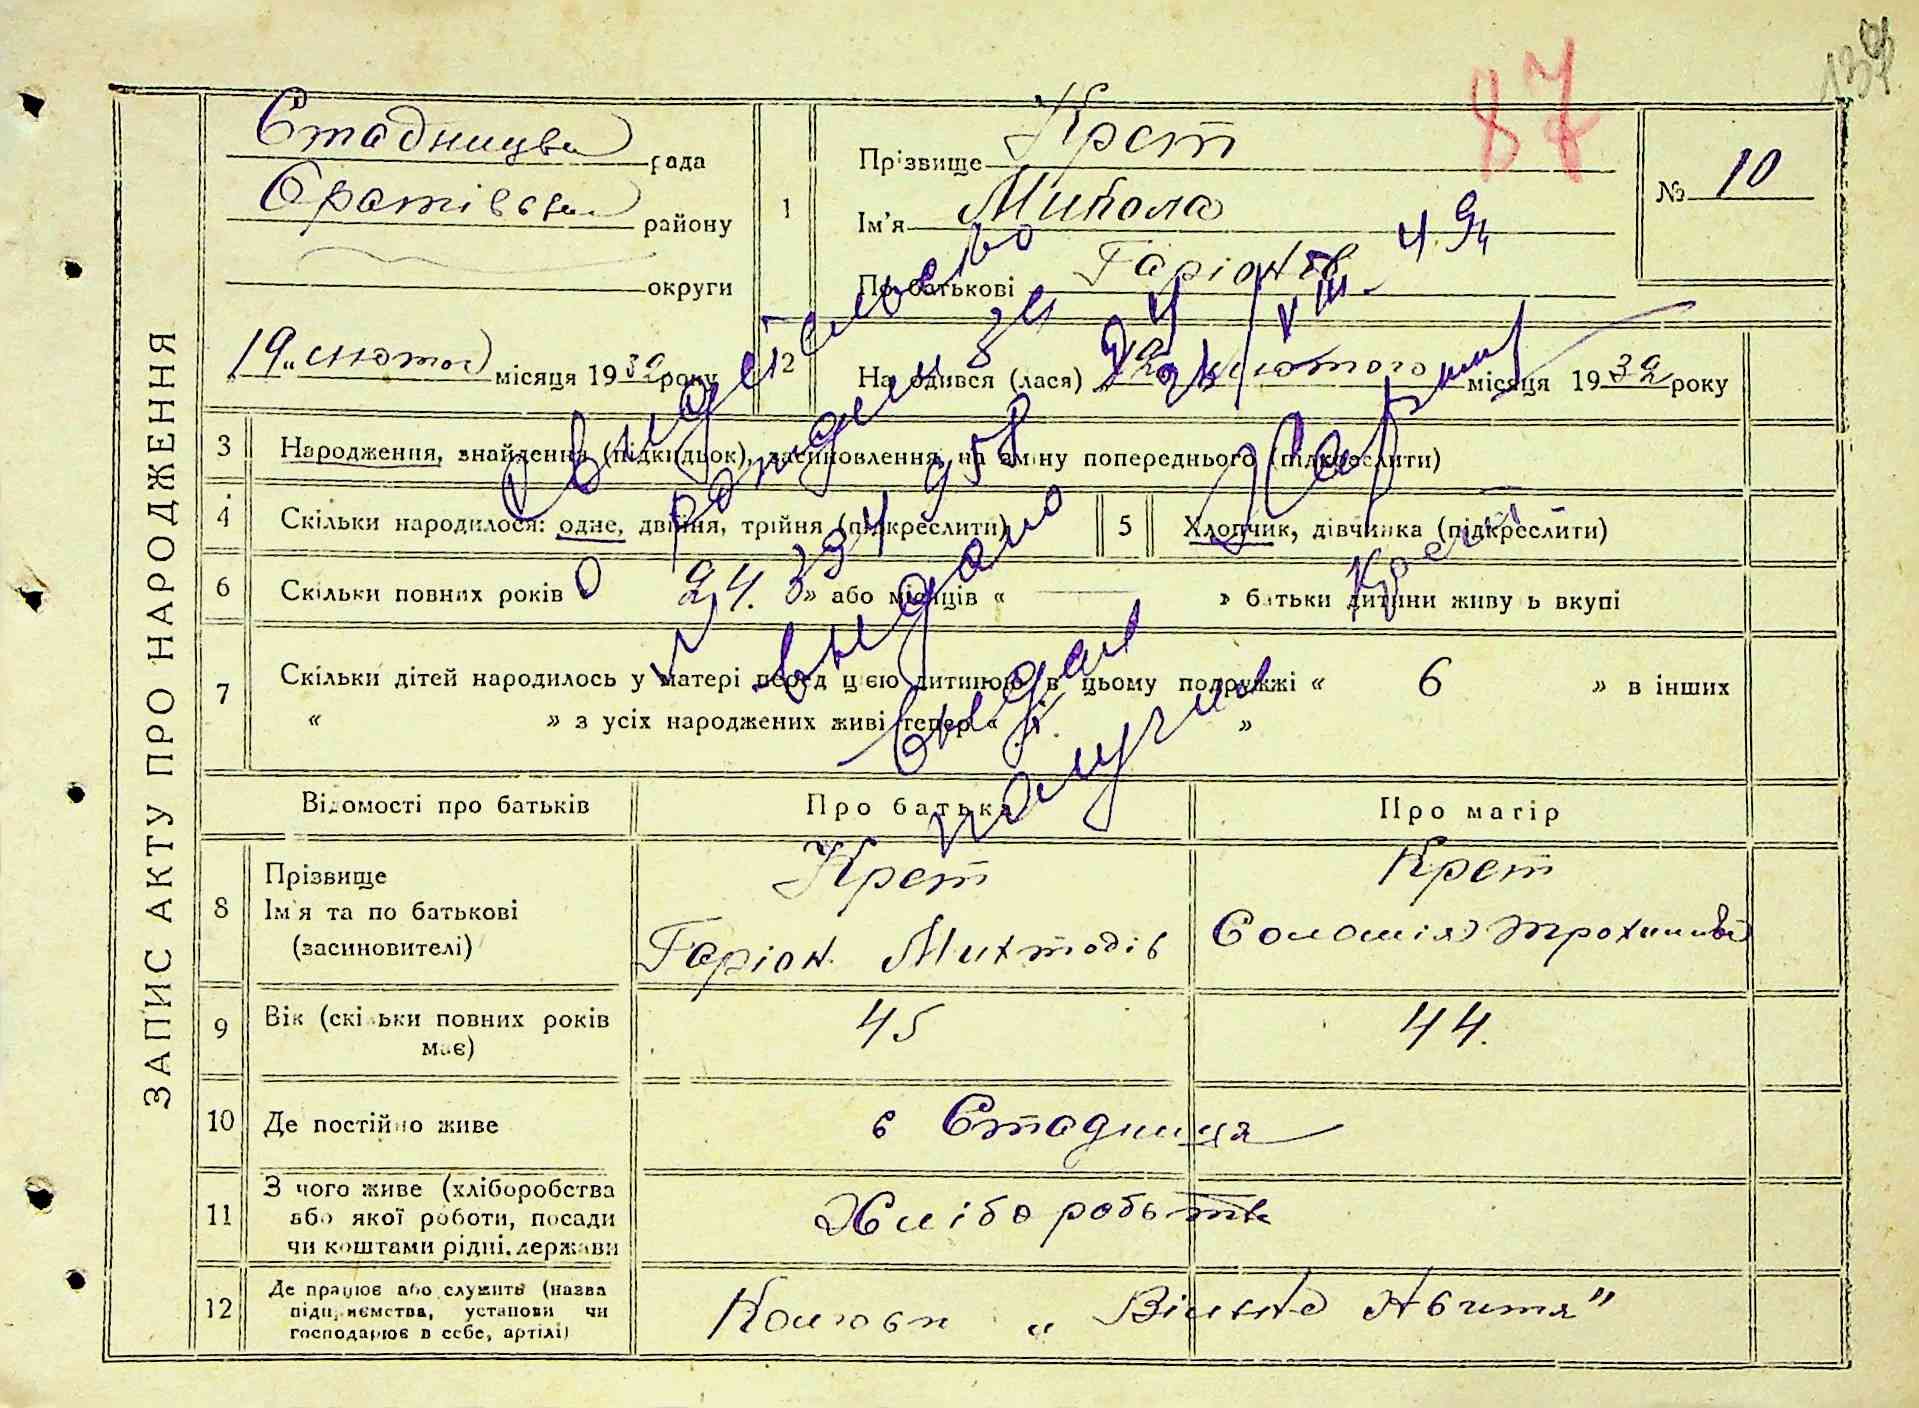 139
87
ЗАПИС АКТУ ПРО НАРОДЖЕННЯ
рада
району
округи
"19" лютого місяця 1932 року
1
Прізвище Крет
Ім'я Микола
По батькові Гаріонів
№ 10
2
Народився (лася) лютого місяця 1932 року
3 Народження, знайдення (підкидьок), засиновлення, на зміну попереднього (підкреслити)
4 Скільки народилося: одне, двійня, трійня (підкреслити)
5 Хлопчик, дівчинка (підкреслити)
6 Скільки повних років « 24 » або місяців « — » батьки дитини живуть вкупі
7 Скільки дітей народилось у матері перед цією дитиною в цьому подружжі « 6 » в інших
« » з усіх народжених живі тепер « »
Свидетельство
о рождении
выдано
выдал
получил
Крет
Відомості про батьків
Про батька
Про матір
8 Прізвище
Ім'я та по батькові
(засиновителі)
Крет
Гаріон
Крет
Соломія
9 Вік (скільки повних років має)
45
44.
10 Де постійно живе
с Стадниця
11 З чого живе (хліборобства або якої роботи, посади чи коштами рідні, держави
Хліборобств
12 Де працює або служить (назва підприємства, установи чи господарює в себе, артілі)
Колгосп „Вільне Життя"